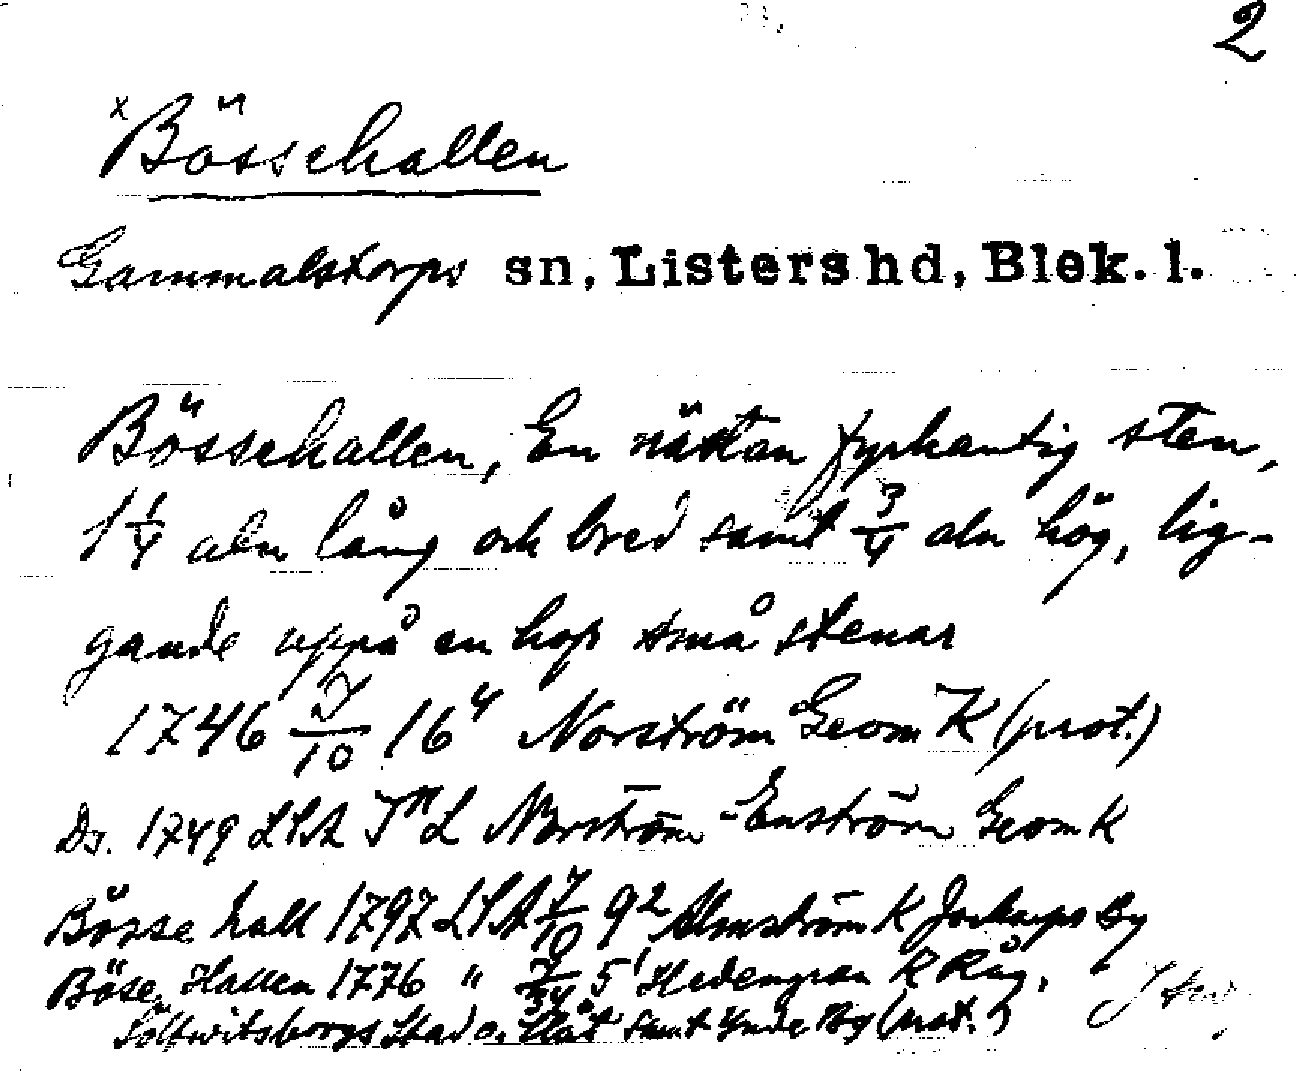 2
x Bössehallen
Gammalstorps sn, Listers hd, Blek. l.
Bössehallen, En nästan fyrkantig sten,
1 1/4 aln lång och bred samt 3/4 aln hög, lig-
gande uppå en hop små stenar
1746 7/10 16⁴ Norström Geom K (prot.)
Ds. 1749 LSA Norström - Enström Geom K
Bösse hall 1797 LSA 7/10 9² Almström K Jockarps By
Böse Hallen 1776 " 5¹ Hedengran K Råg.
Sölfwitsborgs Stad o. Slåt samt Ynde By (prot.)